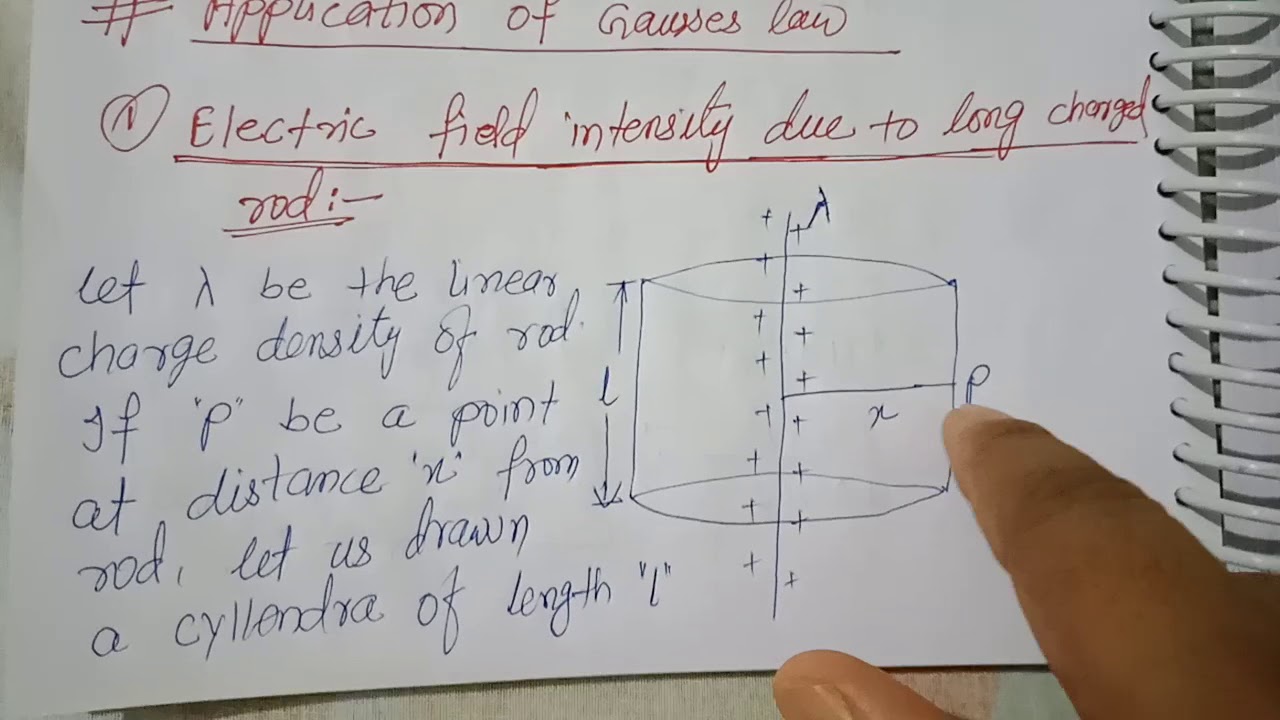 # Application of Gausses law
① Electric field intensity due to long charged
rod:-
Let λ be the linear
charge density of rod.
If "P" be a point
at distance 'x' from
rod, let us drawn
a cyllendra of length "l"
λ
l
x
P